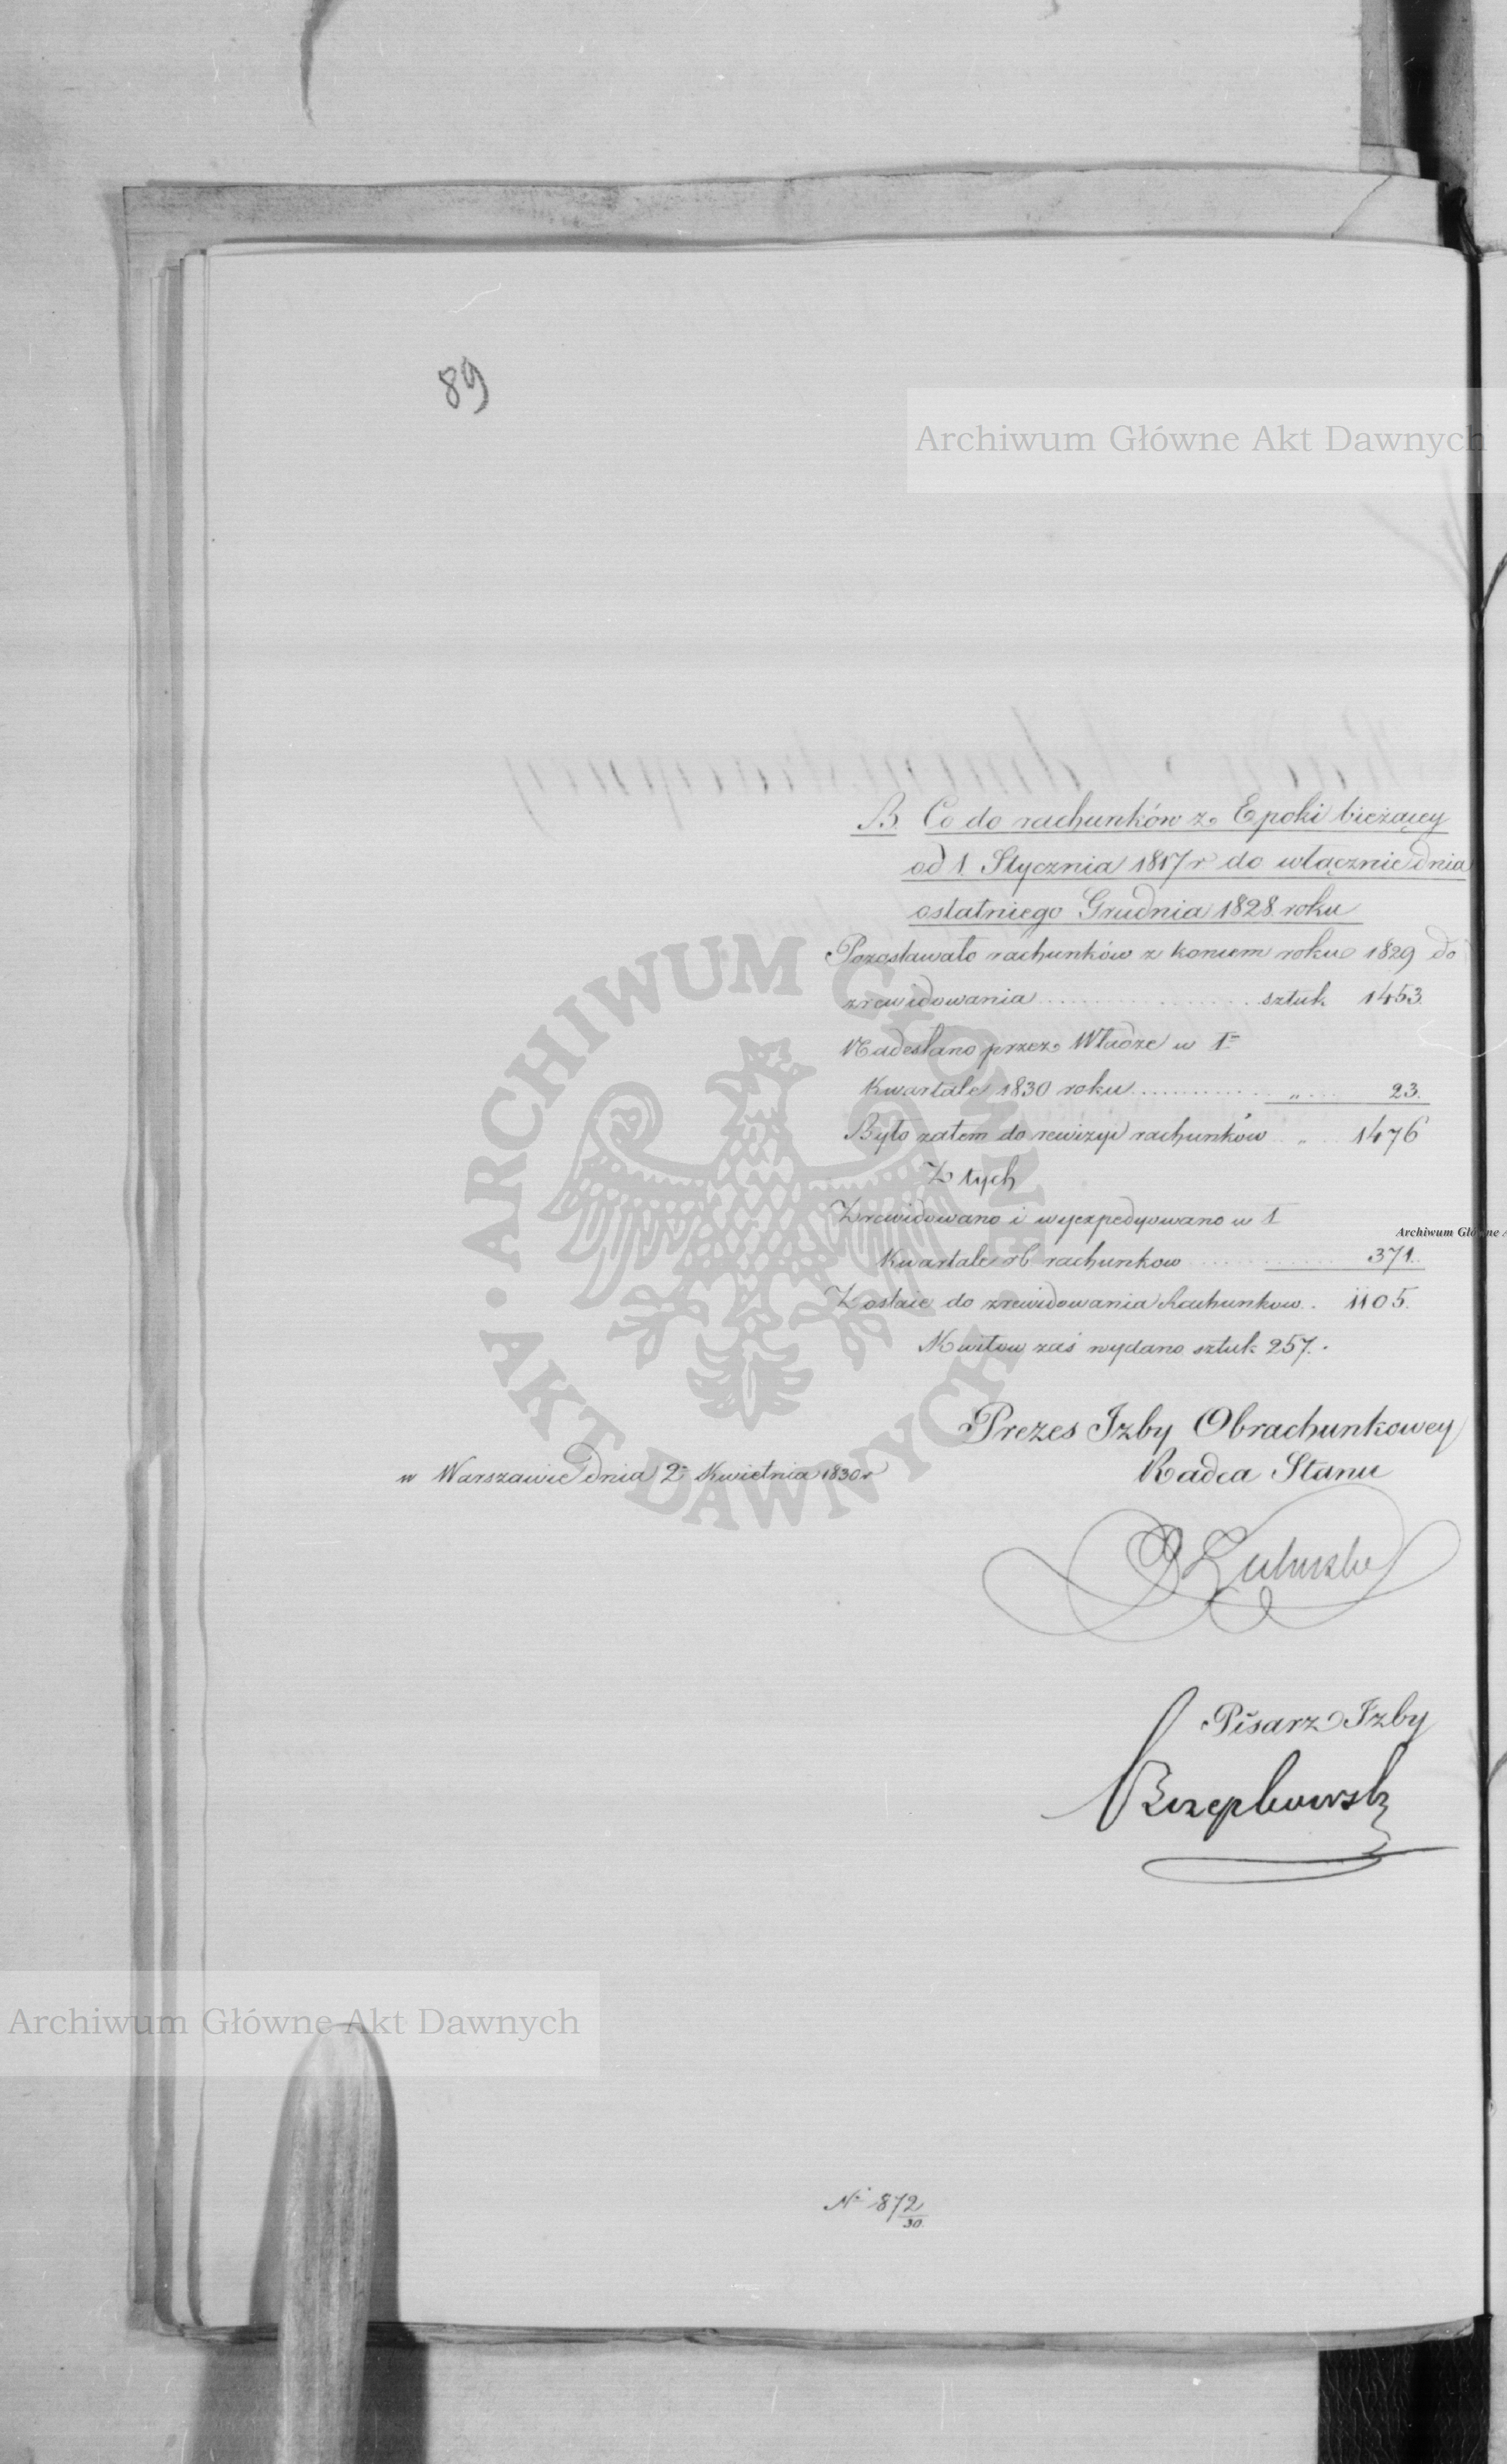 89
Archiwum Główne Akt Dawnych
B. Co do rachunków z Epoki bieżącey
od 1. Stycznia 1817 r do włącznie dnia
ostatniego Grudnia 1828 roku
Pozostawało rachunków z koncem roku 1829 do
zrewidowania ... sztuk 1453.
Nadesłano przez Władze w I
Kwartale 1830 roku ... „ ... 23.
Było zatem do rewizyi rachunków „ 1476
Z tych
Zrewidowano i wyexpedyowano w I
Kwartale rb. rachunkow ... 371.
Zostaie do zrewidowania Rachunkow .. 1105.
Kwitow zaś wydano sztuk 257.
Prezes Izby Obrachunkowey
w Warszawie dnia 2 Kwietnia 1830 r
Radca Stanu
Pisarz Izby
Archiwum Główne Akt Dawnych
N° 872/30
ARCHIWUM GŁÓWNE • AKT DAWNYCH •
Archiwum Główne A